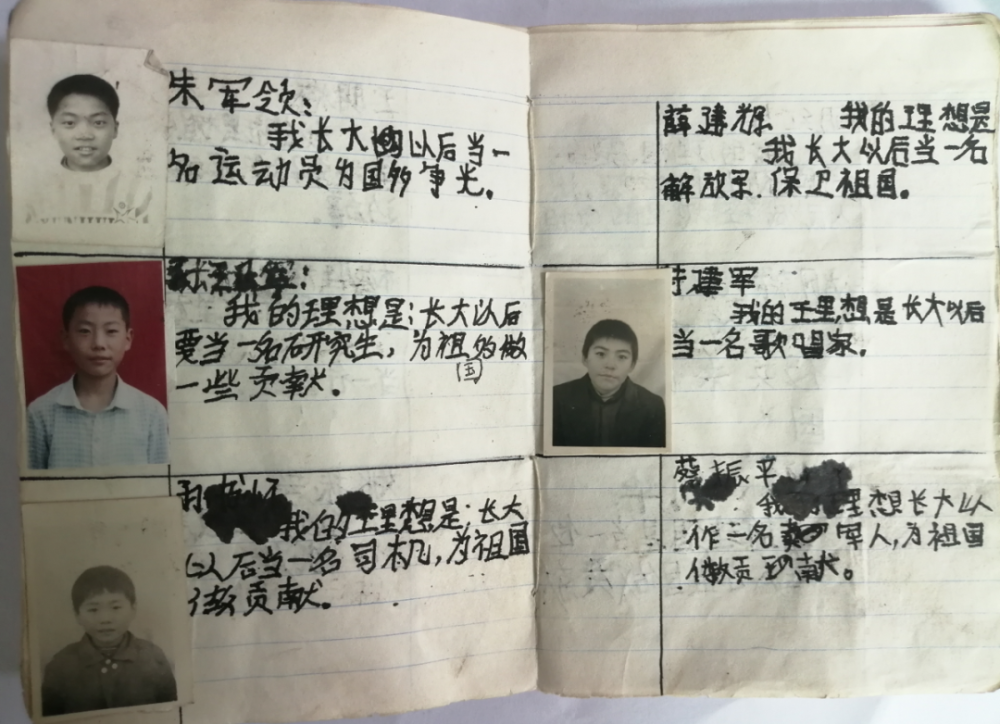 朱军领:
我长大以后当一
名运动员为国多争光。
我的理想是:长大以后
要当一名研究生,为祖国做
一些贡献。
我的理想是:长大
以后当一名司机,为祖国
做贡献。
薛建辉 我的理想是
我长大以后当一名
解放军.保卫祖国。
建军
我的理想是长大以后
当一名歌唱家。
蔡振平
我的理想长大以
作一名军人,为祖国
做贡献。